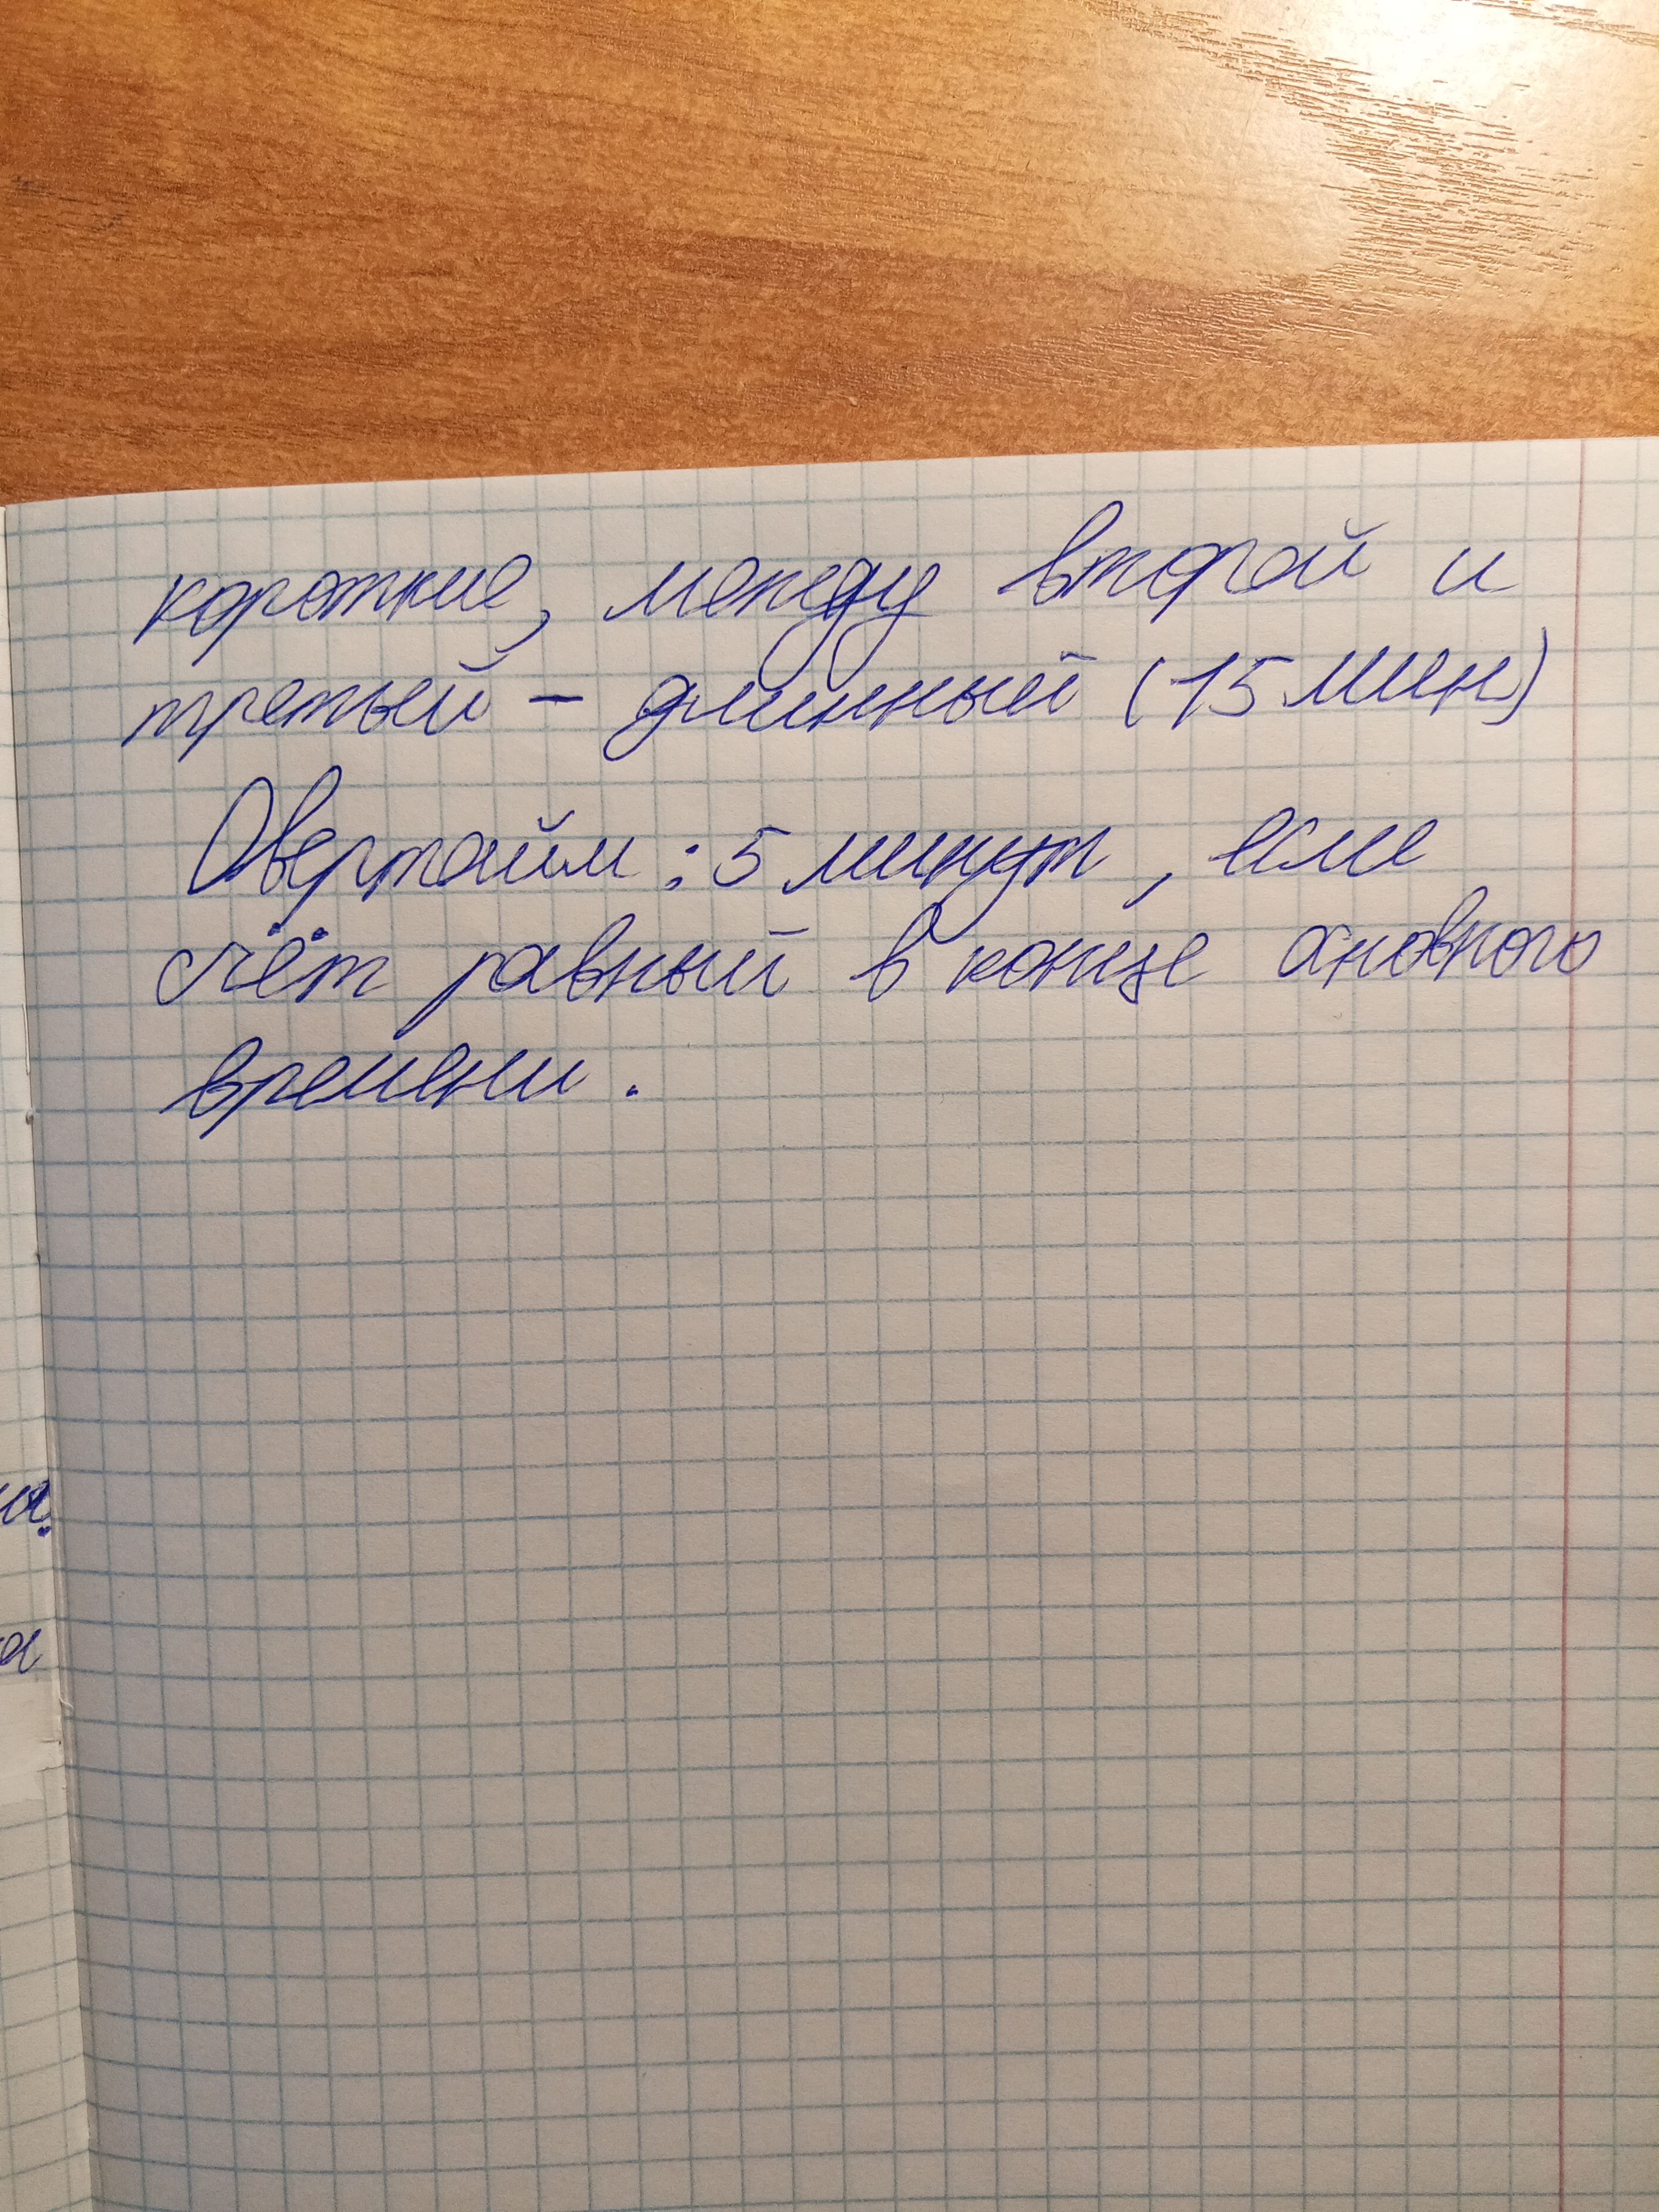 короткие, между второй и
третьей - длинный (15 мин)
Овертайм : 5 минут, если
счёт равный в конце основного
времени.